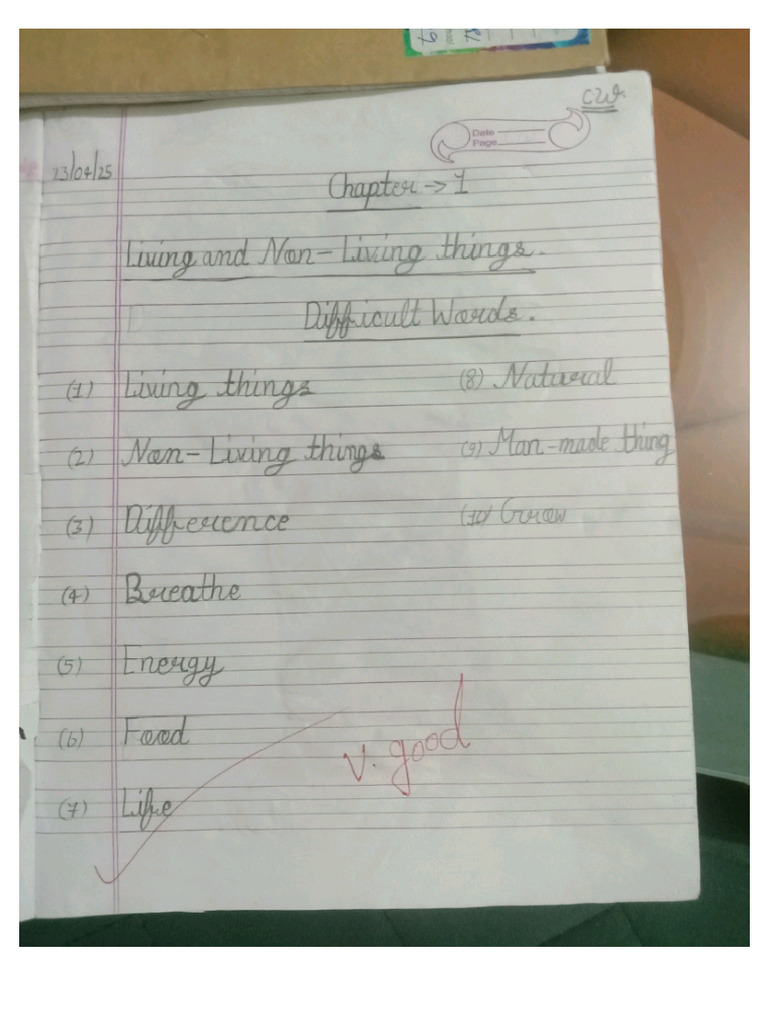 C.W.
Date
Page
23/04/25
Chapter → 1
Living and Non-Living things.
Difficult Words.
(1) Living things
(8) Natural
(2) Non-Living things
(9) Man-made thing
(3) Difference
(10) Grow
(4) Breathe
(5) Energy
(6) Food
(7) Life
v. good